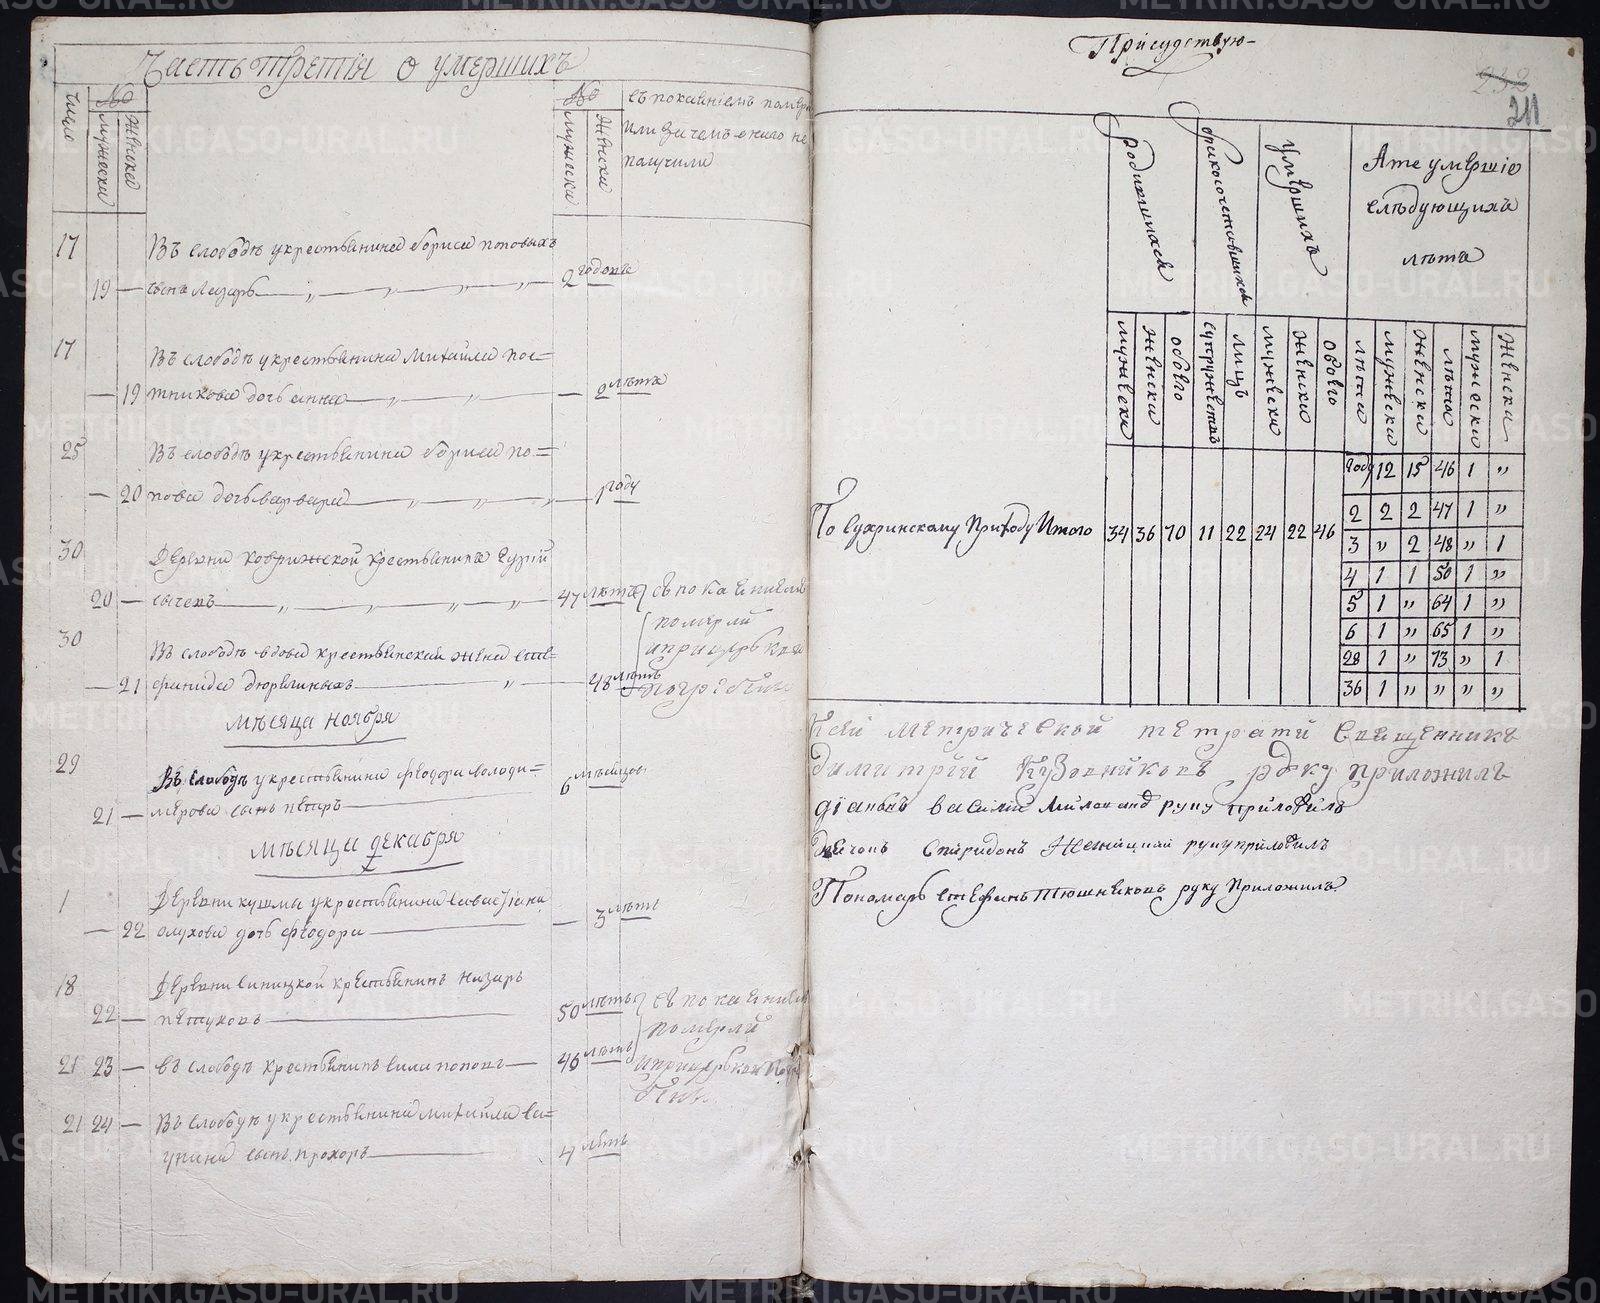 Часть третiя о умершихъ
число
№
мужеска
женска
№
мужеска
женска
съ покаянiемъ померли
или зачемъ оного не
получили
17 Въ слободѣ у крестьянина бориса поповыхъ
19 — сынъ Лазарь — 2 годовъ
17 Въ слободѣ у крестьянина михайла пос=
— 19 тникова дочь анна — 2 лѣта
25 Въ слободѣ у крестьянина бориса по=
— 20 пова дочь варвара — 1 году
30 Деревни кобрижской крестьянинъ
20 — сычевъ — 47 лѣтъ съ покаянiемъ
померли
30 Въ слободѣ вдова крестьянская жена сте=
— 21 фанида — 48 лѣтъ
мѣсяца ноября
29 Въ слободѣ у крестьянина феодора володи=
21 — мерова сынъ петръ — 6 мѣсяцовъ
мѣсяца декабря
1 Деревни кушмы у крестьянина савастiана
— 22 олухова дочь феодора — 3 лѣтъ
18 Деревни синицкой крестьянинъ назаръ
22 — петуховъ — 50 лѣтъ съ покаянiемъ
померли
21 23 — въ слободѣ крестьянинъ сила поповъ — 46 лѣтъ
21 24 — Въ слободѣ у крестьянина михайла са=
пина сынъ прохоръ — 4 лѣтъ
Присудствую-
232
211
родившихся
бракосочетавшихся
умершихъ
А те умершiе
слѣдующихъ
лѣтъ
мужеска
женска
обоего
супружествъ
лицъ
мужеска
женска
обоего
лѣта
мужеска
женска
лѣта
мужеска
женска
По сухринскому приходу Итого 34 36 70 11 22 24 22 46
году 12 15 46 1 „
2 2 2 47 1 „
3 „ 2 48 „ 1
4 1 1 50 1 „
5 1 „ 64 1 „
6 1 „ 65 1 „
28 1 „ 73 „ 1
36 1 „ „ „ „
К сей метрической тетрати священникъ
Димитрiй Кузовниковъ руку приложилъ
дiаконъ василiй руку приложилъ
дьячокъ Спиридонъ руку приложилъ
Пономарь стефанъ Тюшняковъ руку приложилъ
METRIKI.GASO-URAL.RU